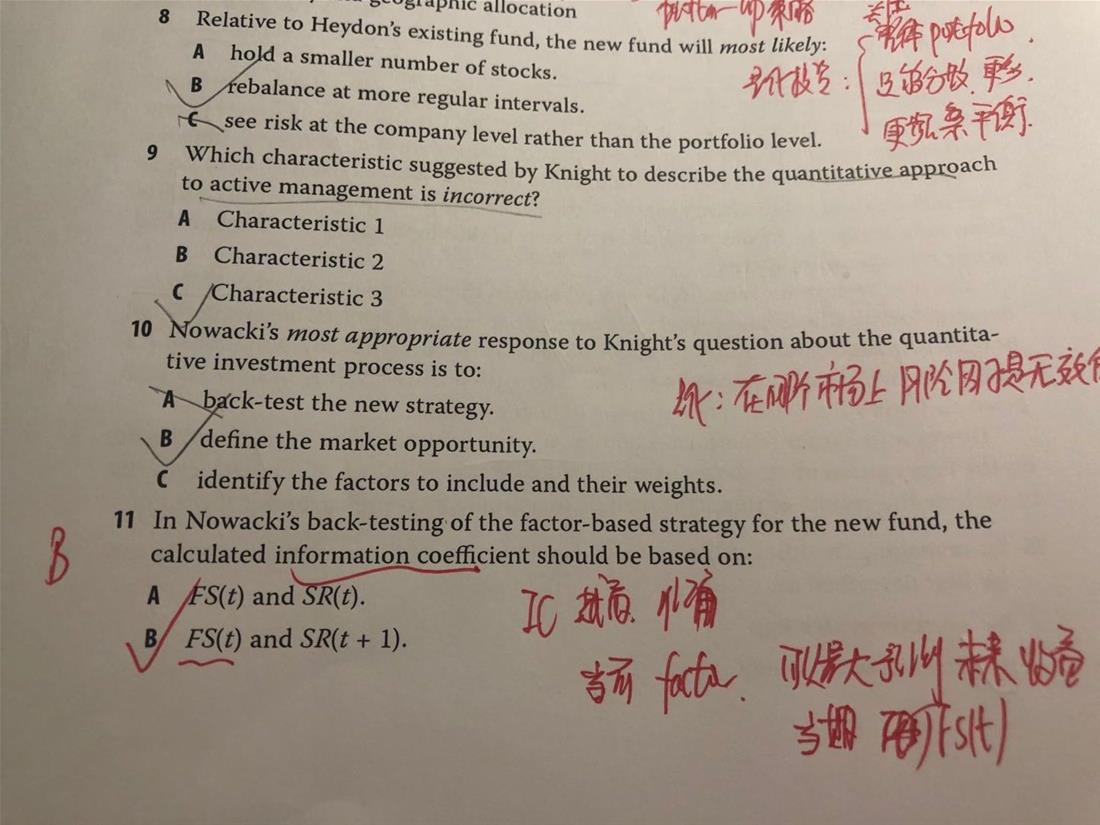 geographic allocation
8 Relative to Heydon's existing fund, the new fund will most likely:
A hold a smaller number of stocks.
B rebalance at more regular intervals.
C see risk at the company level rather than the portfolio level.
整体 portfolio.
量化投资:
足够分散.更多.
更频繁平衡.
9 Which characteristic suggested by Knight to describe the quantitative approach
to active management is incorrect?
A Characteristic 1
B Characteristic 2
C Characteristic 3
10 Nowacki's most appropriate response to Knight's question about the quantita-
tive investment process is to:
A back-test the new strategy.
B define the market opportunity.
C identify the factors to include and their weights.
在哪个市场上
无效
11 In Nowacki's back-testing of the factor-based strategy for the new fund, the
calculated information coefficient should be based on:
B
A FS(t) and SR(t).
B FS(t) and SR(t + 1).
IC
当前 factor.
未来收益
当期 FS(t)